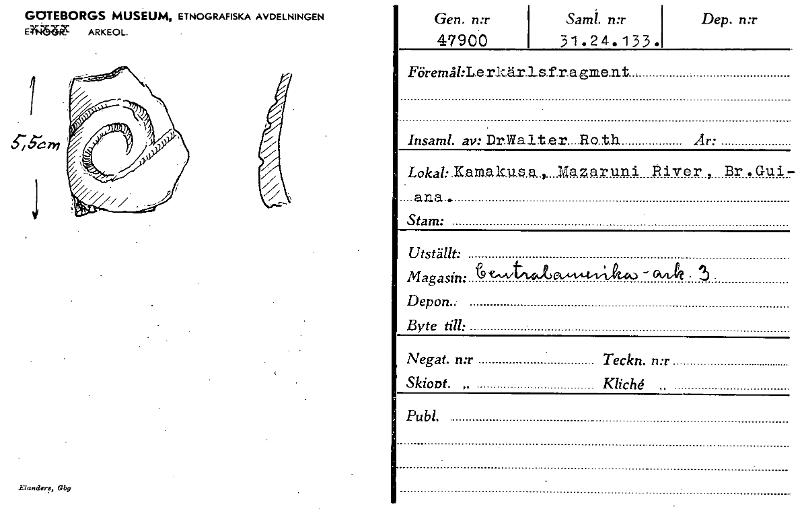 GÖTEBORGS MUSEUM, ETNOGRAFISKA AVDELNINGEN
ARKEOL.
5,5cm
Gen. n:r Saml. n:r Dep. n:r
47900 31.24.133.
Föremål: Lerkärlsfragment
Insaml. av: DrWalter Roth År:
Lokal: Kamakusa, Mazaruni River, Br.Gui-
ana.
Stam:
Utställt:
Magasin: Centralamerika-ark. 3
Depon.:
Byte till:
Negat. n:r Teckn. n:r
Skiopt. „ Kliché „
Publ.
Elanders, Gbg